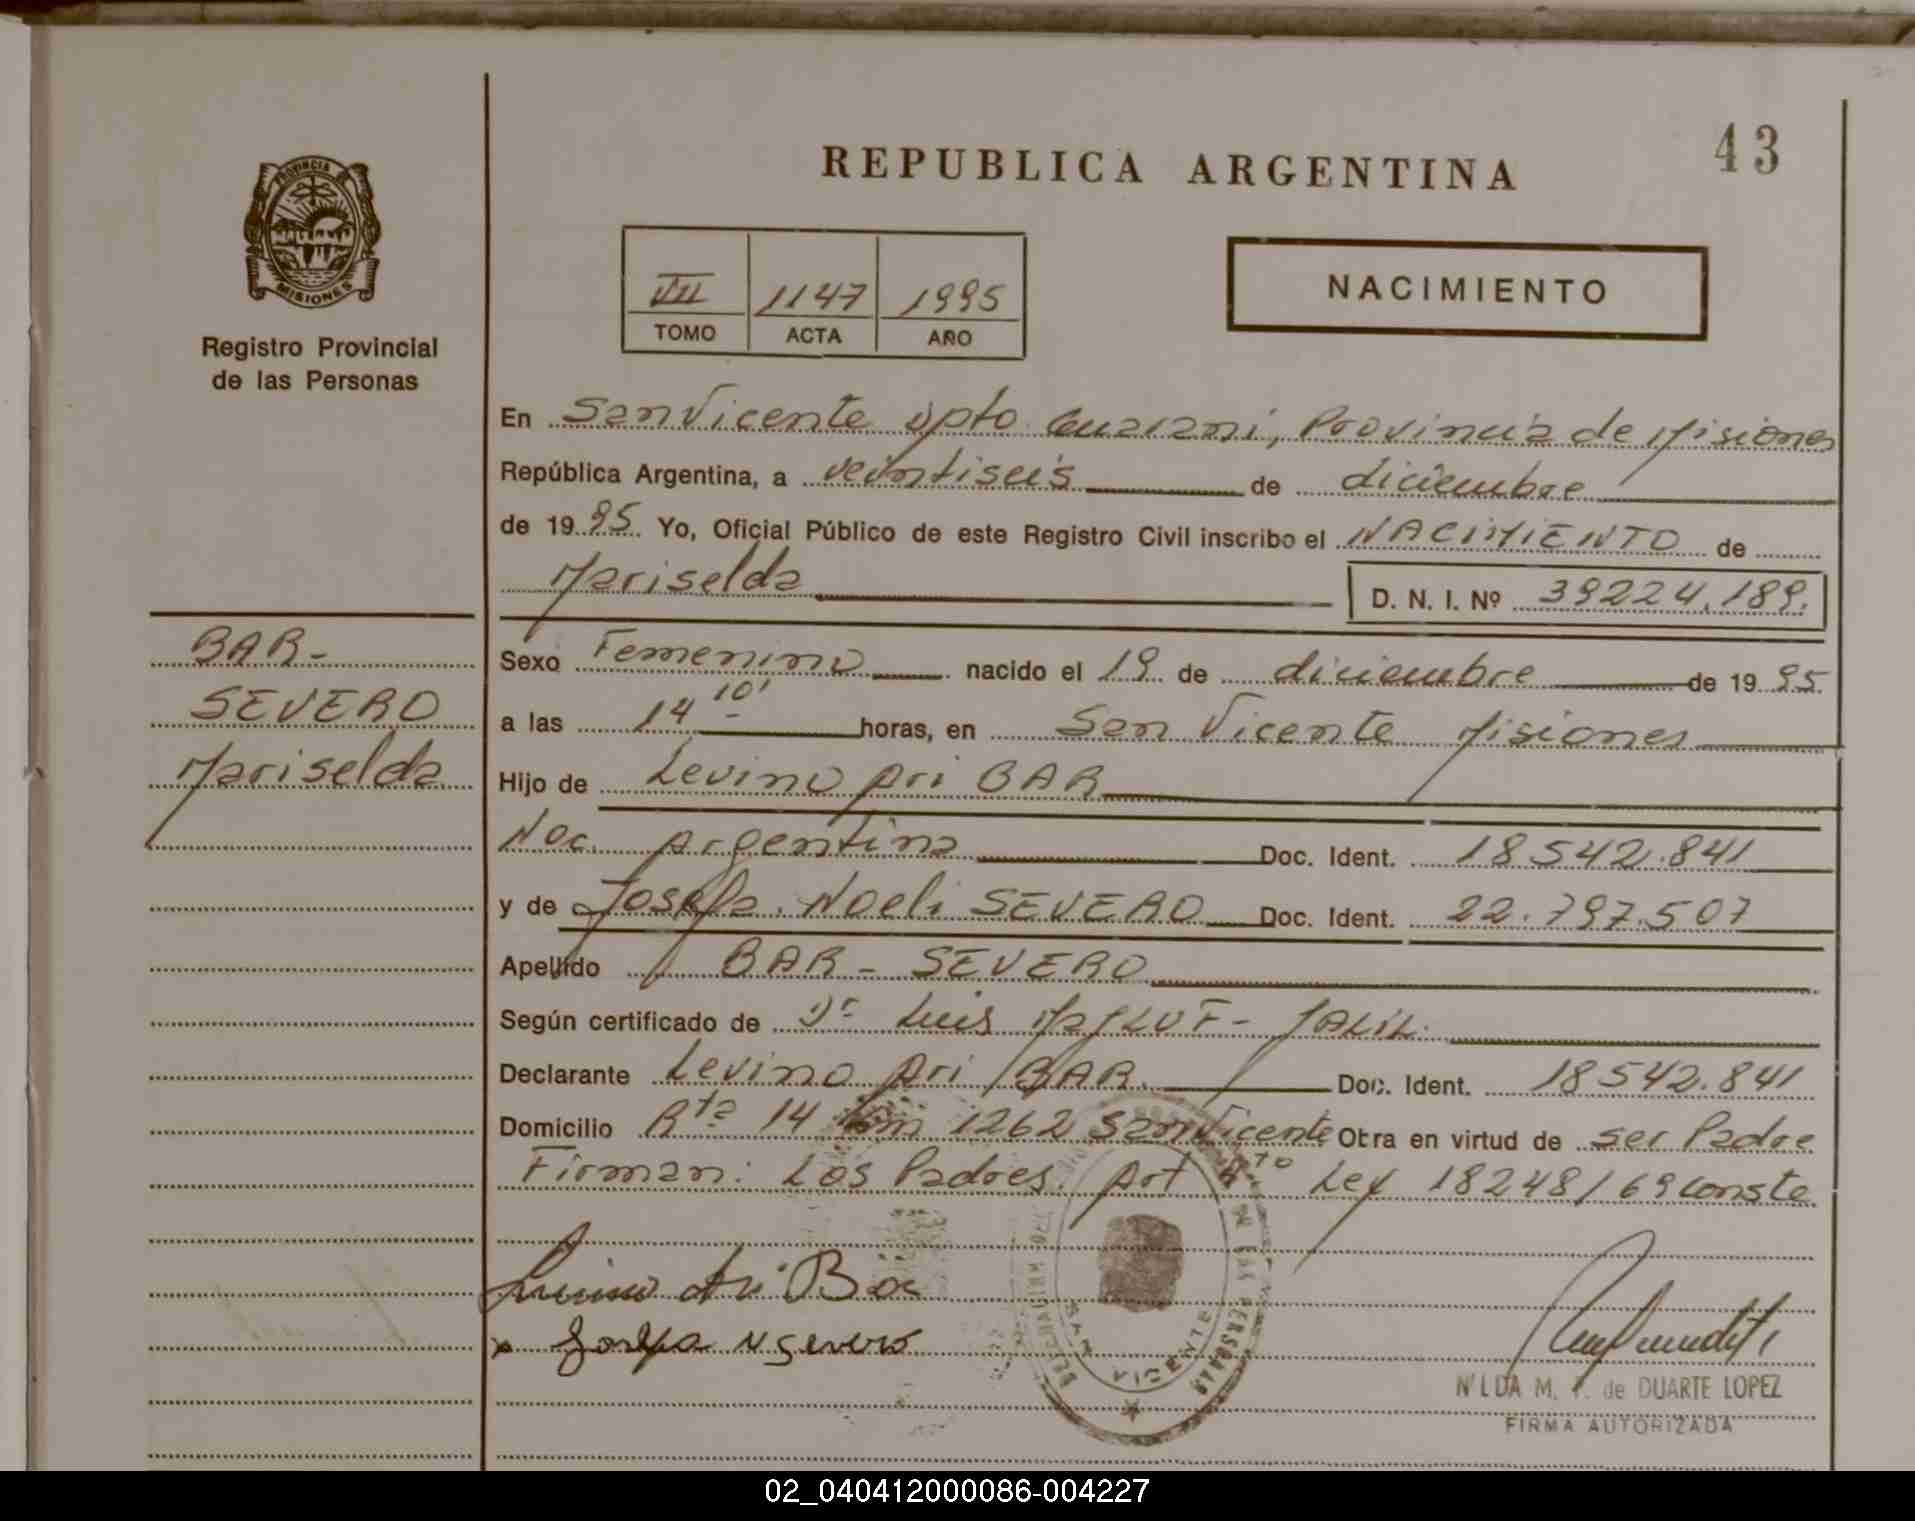 43
REPUBLICA ARGENTINA
PROVINCIA DE
MISIONES
Registro Provincial
de las Personas
VII 1147 1995
TOMO ACTA AÑO
NACIMIENTO
En San Vicente Dpto Guarani, Provincia de Misiones
República Argentina, a veintiseis de diciembre
de 1995 Yo, Oficial Público de este Registro Civil inscribo el NACIMIENTO de
Mariselda D. N. I. Nº 39224.189.
BAR-
SEVERO
Mariselda
Sexo Femenino nacido el 19 de diciembre de 1995
a las 14 10' horas, en San Vicente Misiones
Hijo de Levino Ari BAR
Nac. Argentina Doc. Ident. 18542.841
y de Josefa Noeli SEVERO Doc. Ident. 22.797.507
Apellido BAR - SEVERO
Según certificado de Dr Luis MAJLUF - JALIL.
Declarante Levino Ari BAR. Doc. Ident. 18542.841
Domicilio Rta 14 Km 1262 San Vicente Obra en virtud de ser Padre
Firman: Los Padres. Art 4to Ley 18248/69 conste
Ari Bar
x Josefa N Severo
SAN VICENTE
DE LAS PERSONAS
NILDA M. F. de DUARTE LOPEZ
FIRMA AUTORIZADA
02_040412000086-004227